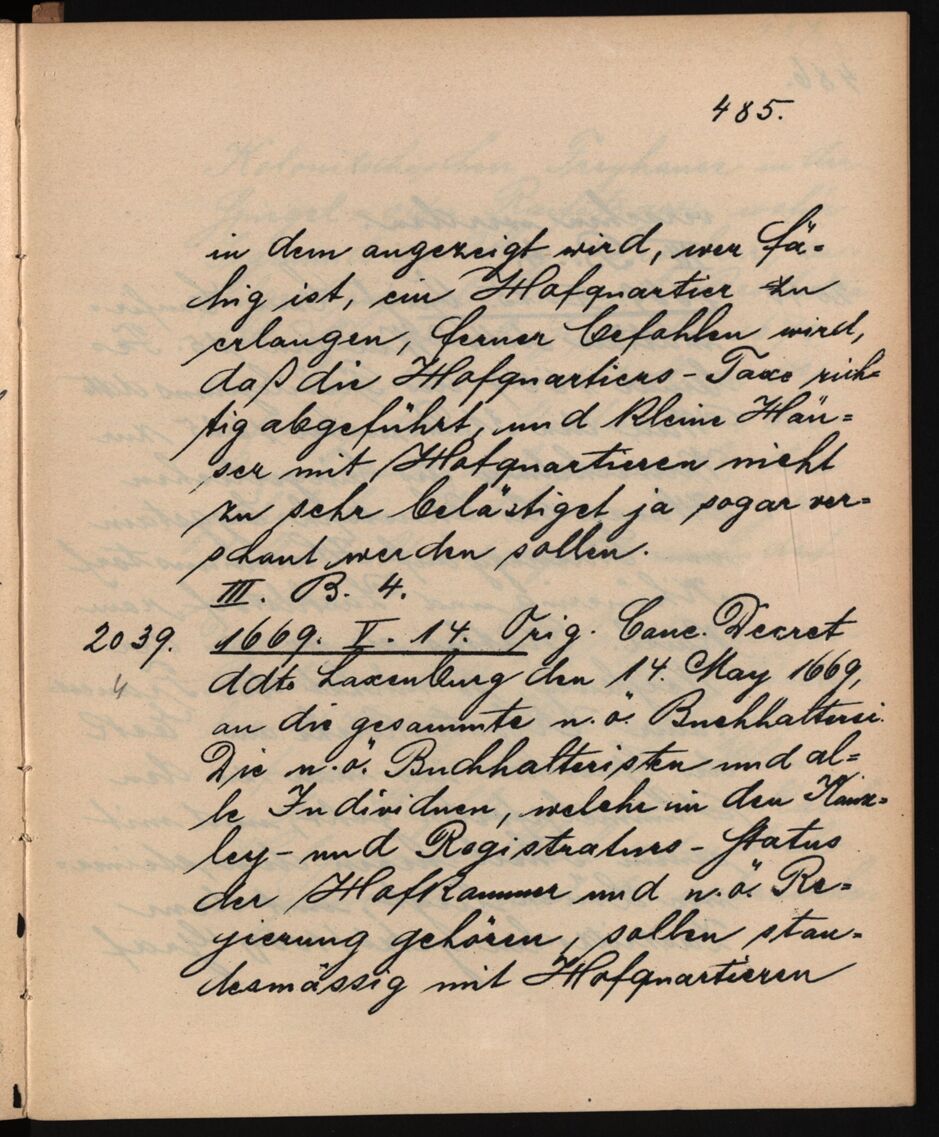 485.
in dem angezeigt wird, wer fä-
hig ist, ein Hofquartier zu
erlangen, ferner befohlen wird,
daß die Hofquartiers-Taxe rich-
tig abgeführt, und kleine Häu-
ser mit Hofquartieren nicht
zu sehr belästiget ja sogar ver-
schont werden sollen.
III. B. 4.
2039. 1669. V. 14. Orig. Canc. Decret
4 ddto Laxenburg den 14. May 1669,
an die gesammte n. ö. Buchhalterei.
Die n. ö. Buchhalteristen und al-
le Individuen, welche in den Kanz-
ley- und Registraturs-Status
der Hofkammer und n. ö. Re-
gierung gehören, sollen stan-
desmässig mit Hofquartieren